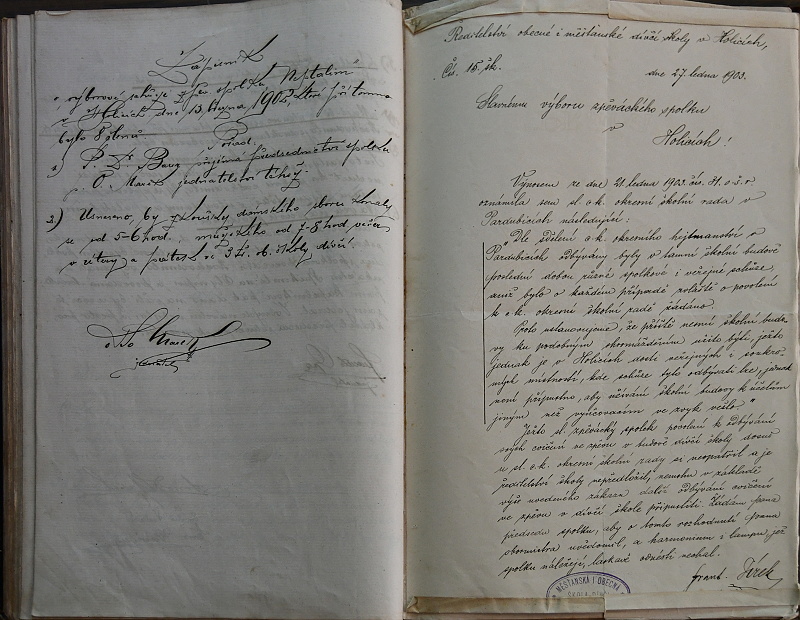 Zápisník
o výborové schůzi zpěv. spolku "Neptalim"
v Holicích dne 13. října 1902, které přítomno
bylo 8 členů
Pořad.
1) P. Dr. přijímá předsednictví spolku
p. O. Mareš jednatelství též.
2) Usneseno, by zkoušky dámského sboru konaly
se od 5-6 hod., mužského od 7-8 hod večer
v úterý a pátek ve 3 tř. ob. školy dívčí.
Otto Mareš
jednatel
Ředitelství obecné i měšťanské dívčí školy v Holicích,
Čís. 15. šk.
dne 27 ledna 1903.
Slavnému výboru zpěváckého spolku
v
Holicích!
Výnosem ze dne 21. ledna 1903. čís. o. š. r.
oznámila sem sl. c. k. okresní školní rada v
Pardubicích následující:
"Dle sdělení c. k. okresního hejtmanství v
Pardubicích odbývány byly v tamní školní budově
poslední dobou různé spolkové i veřejné schůze,
aniž bylo v každém případě zvláště o povolení
k c. k. okresní školní radě žádáno.
Proto ustanovujeme, že příště nesmí školní budo-
vy ku podobným shromážděním užito býti, ježto
jednak je v Holicích dosti veřejných i soukro-
mých místností, kde schůze tyto odbývati lze, jednak
není přípustno, aby užívání školní budovy k účelům
jiným než vyučovacím ve zvyk vešlo."
Ježto sl. zpěvácký spolek povolení k odbývání
svých cvičení ve zpěvu v budově dívčí školy dosud
u sl. c. k. okresní školní rady si neopatřil a je
ředitelství školy nepředložil, nemohu v základě
výše uvedeného zákazu další odbývání cvičení
ve zpěvu v dívčí škole připustiti. Žádám pana
předsedu spolku, aby o tomto rozhodnutí pana
sbormistra uvědomil, a harmonium i lampu, jež
spolku náležejí, laskavě odnésti nechal.
Frant. Jirek
MĚŠŤANSKÁ I OBECNÁ